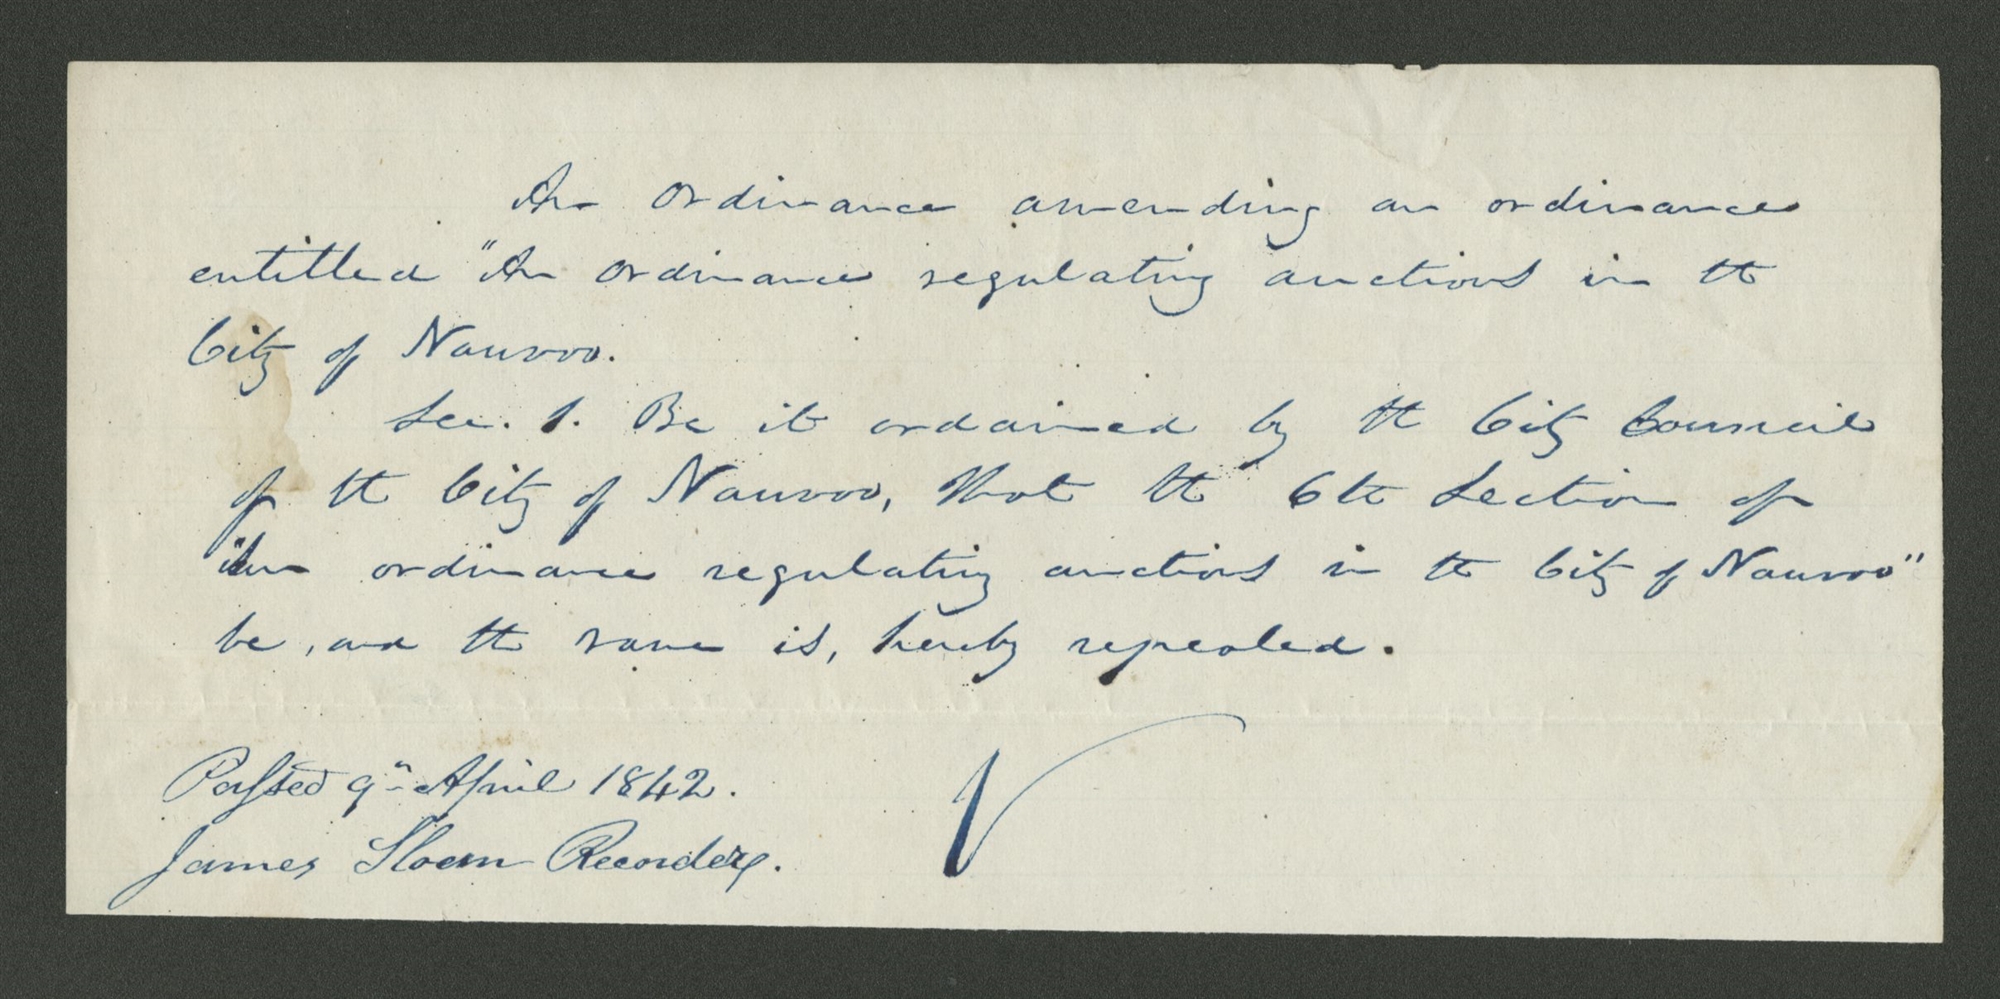 An Ordinance amending an ordinance
entitled "An Ordinance regulating auctions in the
City of Nauvoo.
Sec. 1. Be it ordained by the City Council
of the City of Nauvoo, that the 6th Section of
"An ordinance regulating auctions in the City of Nauvoo"
be, and the same is, hereby repealed.
Passed 9th April 1842.
James Sloan Recorder.